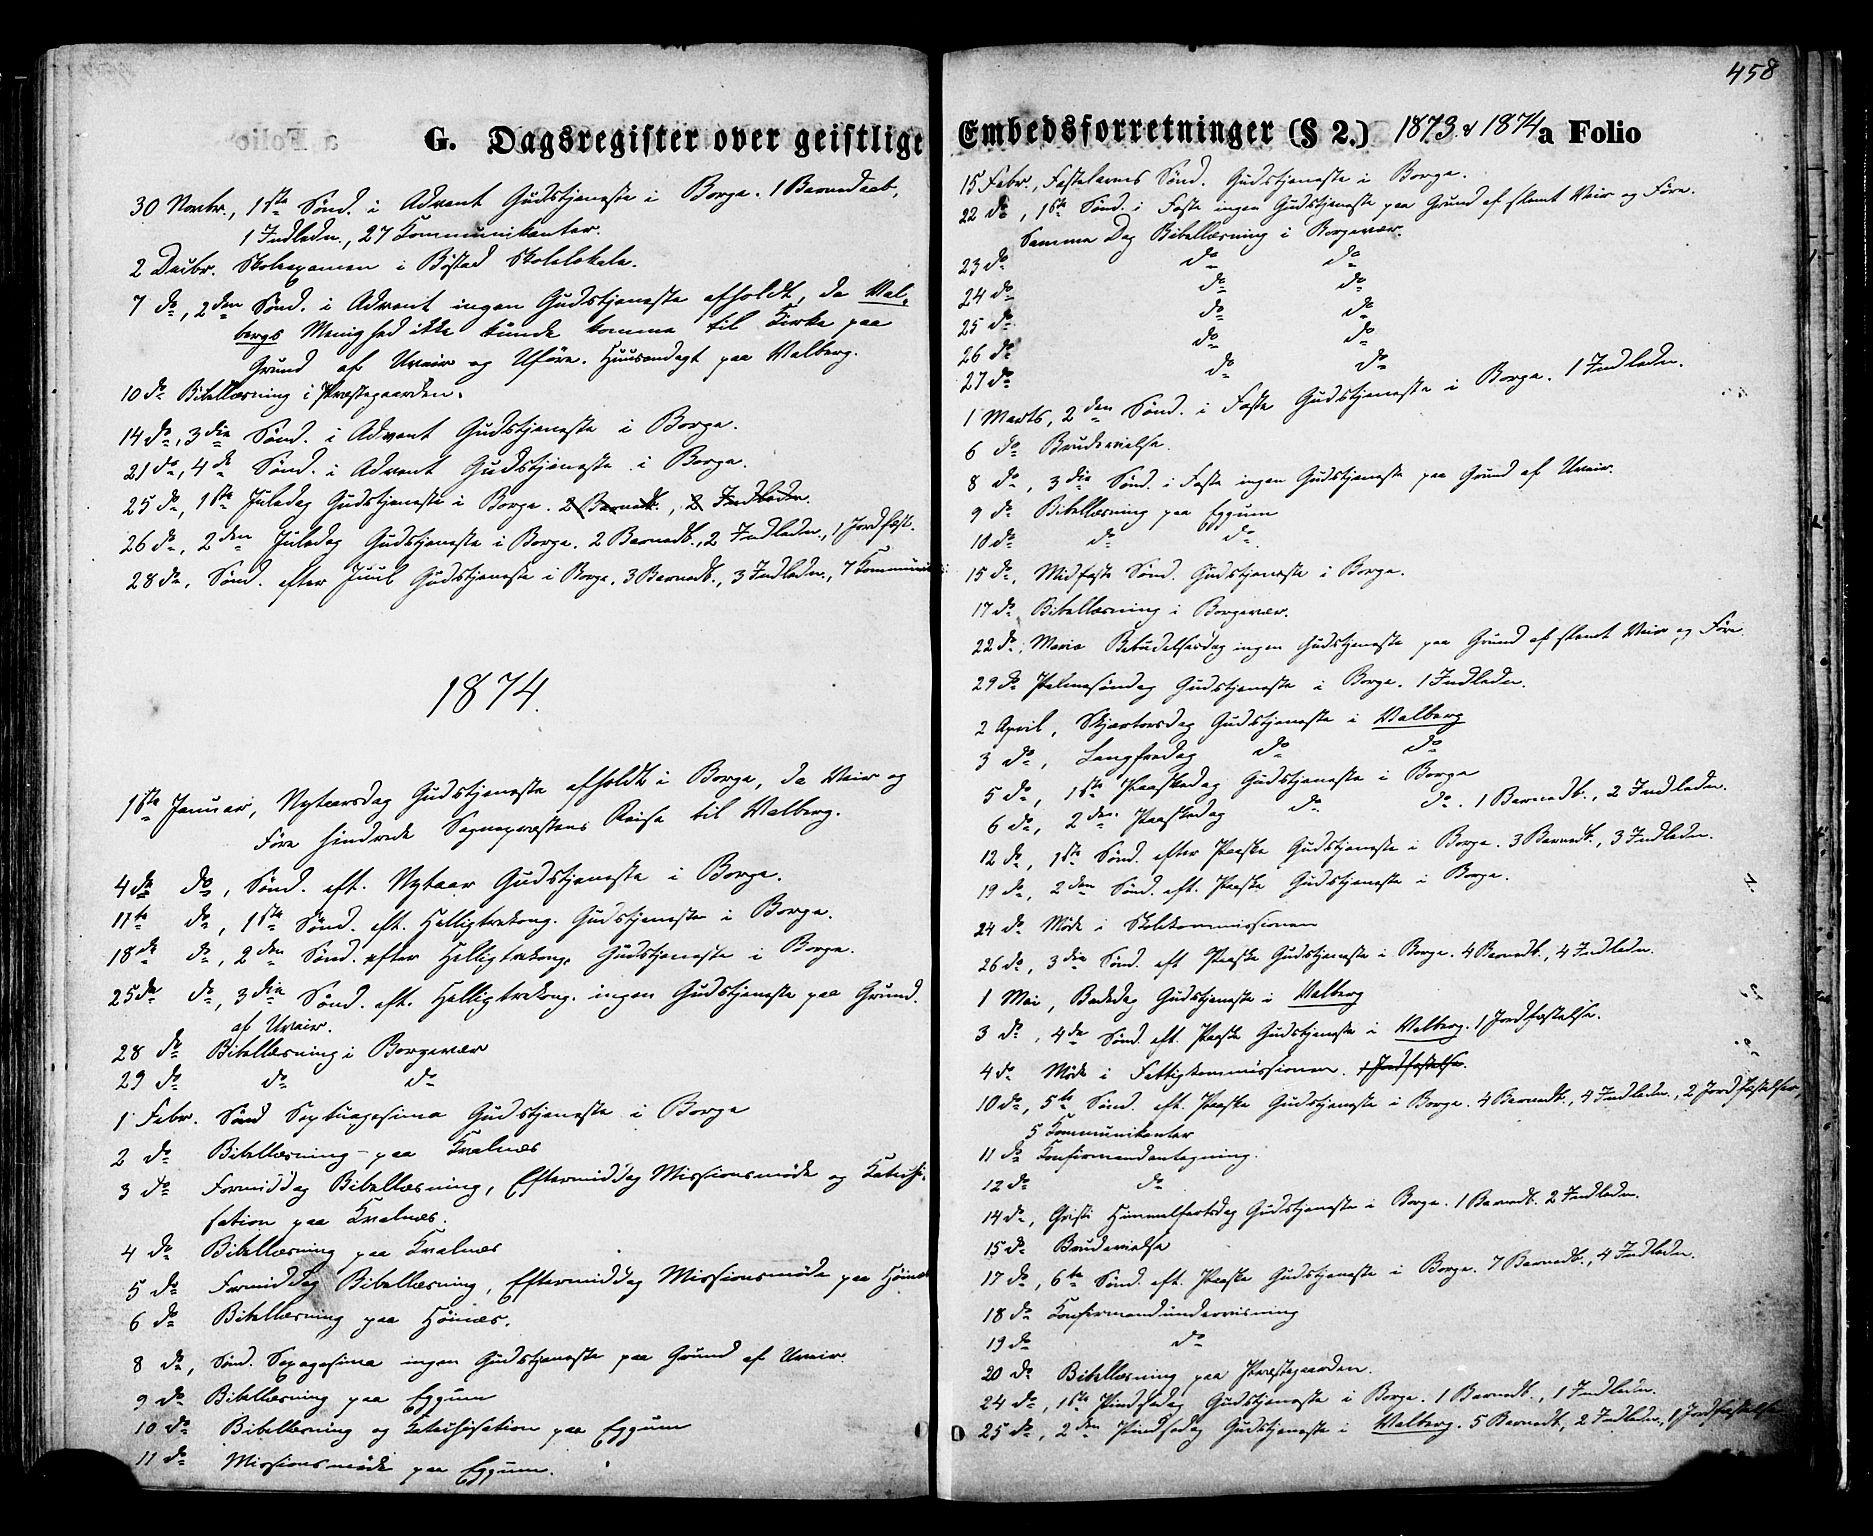 G. Dagsregister over geistlige
30 Novbr., 1ste Sønd. i Advent Gudstjeneste i Borge. 1 Barnedaab,
1 Indledn., 27 Kommunikanter.
2 Decbr. Skoleexamen i Bøstad Skolelokale.
7 do, 2den Sønd. i Advent ingen Gudstjeneste afholdt, da Val-
bergs Menighed ikke kunde komme til Kirke paa
Grund af Uveir og Uføre. Huusandagt paa Valberg.
10 do Bibellæsning i Præstegaarden.
14 do, 3die Sønd. i Advent Gudstjeneste i Borge.
21 do, 4de Sønd. i Advent Gudstjeneste i Borge.
25 do, 1ste Juledag Gudstjeneste i Borge. 2 Barned., 2 Indledn.
26 do, 2den Juledag Gudstjeneste i Borge. 2 Barned., 2 Indledn., 1 Jordfæst.
28 do, Sønd. efter Juul Gudstjeneste i Borge. 3 Barned., 3 Indledn., 7 Kommuni
1874.
1ste Januar, Nytaarsdag Gudstjeneste afholdt i Borge, da Veir og
Føre hindrede Sognepræstens Reise til Valberg.
4de do, Sønd. eft. Nytaar Gudstjeneste i Borge.
11te do, 1ste Sønd. eft. Helligtrekong. Gudstjeneste i Borge.
18de do, 2den Sønd. efter Helligtrekong. Gudstjeneste i Borge.
25de do, 3die Sønd. eft. Helligtrekong. ingen Gudstjeneste paa Grund
af Uveir.
28 do Bibellæsning i Borgevær
29 do do do
1 Febr. Sønd Septuagesima Gudstjeneste i Borge
2 do Bibellæsning paa Kvalnæs
3 do Formiddag Bibellæsning, Eftermiddag Missionsmøde og Katechi-
sation paa Kvalnæs.
4 do Bibellæsning paa Kvalnæs
5 do Formiddag Bibellæsning, Eftermiddag Missionsmøde paa Høinæs
6 do Bibellæsning paa Høinæs.
8 do, Sønd. Sexagesima ingen Gudstjeneste paa Grund af Uveir.
9 do Bibellæsning paa Eggum
10 do Bibellæsning og Katechisation paa Eggum
11 do Missionsmøde paa Eggum.
458
Embedsforretninger (§ 2.) 1873 & 1874 a Folio
15 Febr., Fastelavns Sønd. Gudstjeneste i Borge.
22 do, 1ste Sønd. i Faste ingen Gudstjeneste paa Grund af slemt Veir og Føre.
Samme Dag Bibellæsning i Borgevær.
23 do do do
24 do do do
25 do do do
26 do do do
27 do do do
1 Marts, 2den Sønd. i Faste Gudstjeneste i Borge. 1 Indledn.
6 do Brudevielse.
8 do, 3die Sønd. i Faste ingen Gudstjeneste paa Grund af Uveir.
9 do Bibellæsning paa Eggum
10 do do do
15 do, Midfaste Sønd. Gudstjeneste i Borge.
17 do Bibellæsning i Borgevær.
22 do, Maria Bebudelsesdag ingen Gudstjeneste paa Grund af slemt Veir og Føre
29 do Palmesøndag Gudstjeneste i Borge. 1 Indledn.
2 April, Skjærtorsdag Gudstjeneste i Valberg
3 do, Langfredag do do
5 do, 1ste Paaskedag Gudstjeneste i Borge
6 do, 2den Paaskedag do do. 1 Barned., 2 Indledn.
12 do, 1ste Sønd. efter Paaske Gudstjeneste i Borge. 3 Barned., 3 Indledn.
19 do, 2den Sønd. eft. Paaske Gudstjeneste i Borge.
24 do Møde i Skolekommissionen
26 do, 3die Sønd. eft Paaske Gudstjeneste i Borge. 4 Barned., 4 Indledn.
1 Mai, Bededag Gudstjeneste i Valberg
3 do, 4de Sønd. eft. Paaske Gudstjeneste i Valberg. 1 Jordfæstelse.
4 do Møde i Fattigkommissionen. 1 Jordfæstelse.
10 do, 5te Sønd. eft. Paaske Gudstjeneste i Borge. 4 Barned., 4 Indledn., 2 Jordfæstelser,
5 Kommunikanter
11 do Konfirmandantagning.
12 do do
14 do, Christi Himmelfartsdag Gudstjeneste i Borge. 1 Barned. 2 Indledn.
15 do Brudevielse
17 do, 6te Sønd. eft. Paaske Gudstjeneste i Borge. 7 Barned., 4 Indledn.
18 do Konfirmandundervisning
19 do do
20 do Bibellæsning paa Præstegaarden.
24 do, 1ste Pindsedag Gudstjeneste i Borge. 1 Barned., 1 Indledn.
25 do, 2den Pindsedag Gudstjeneste i Valberg. 5 Barned., 2 Indledn., 1 Jordfæstelse